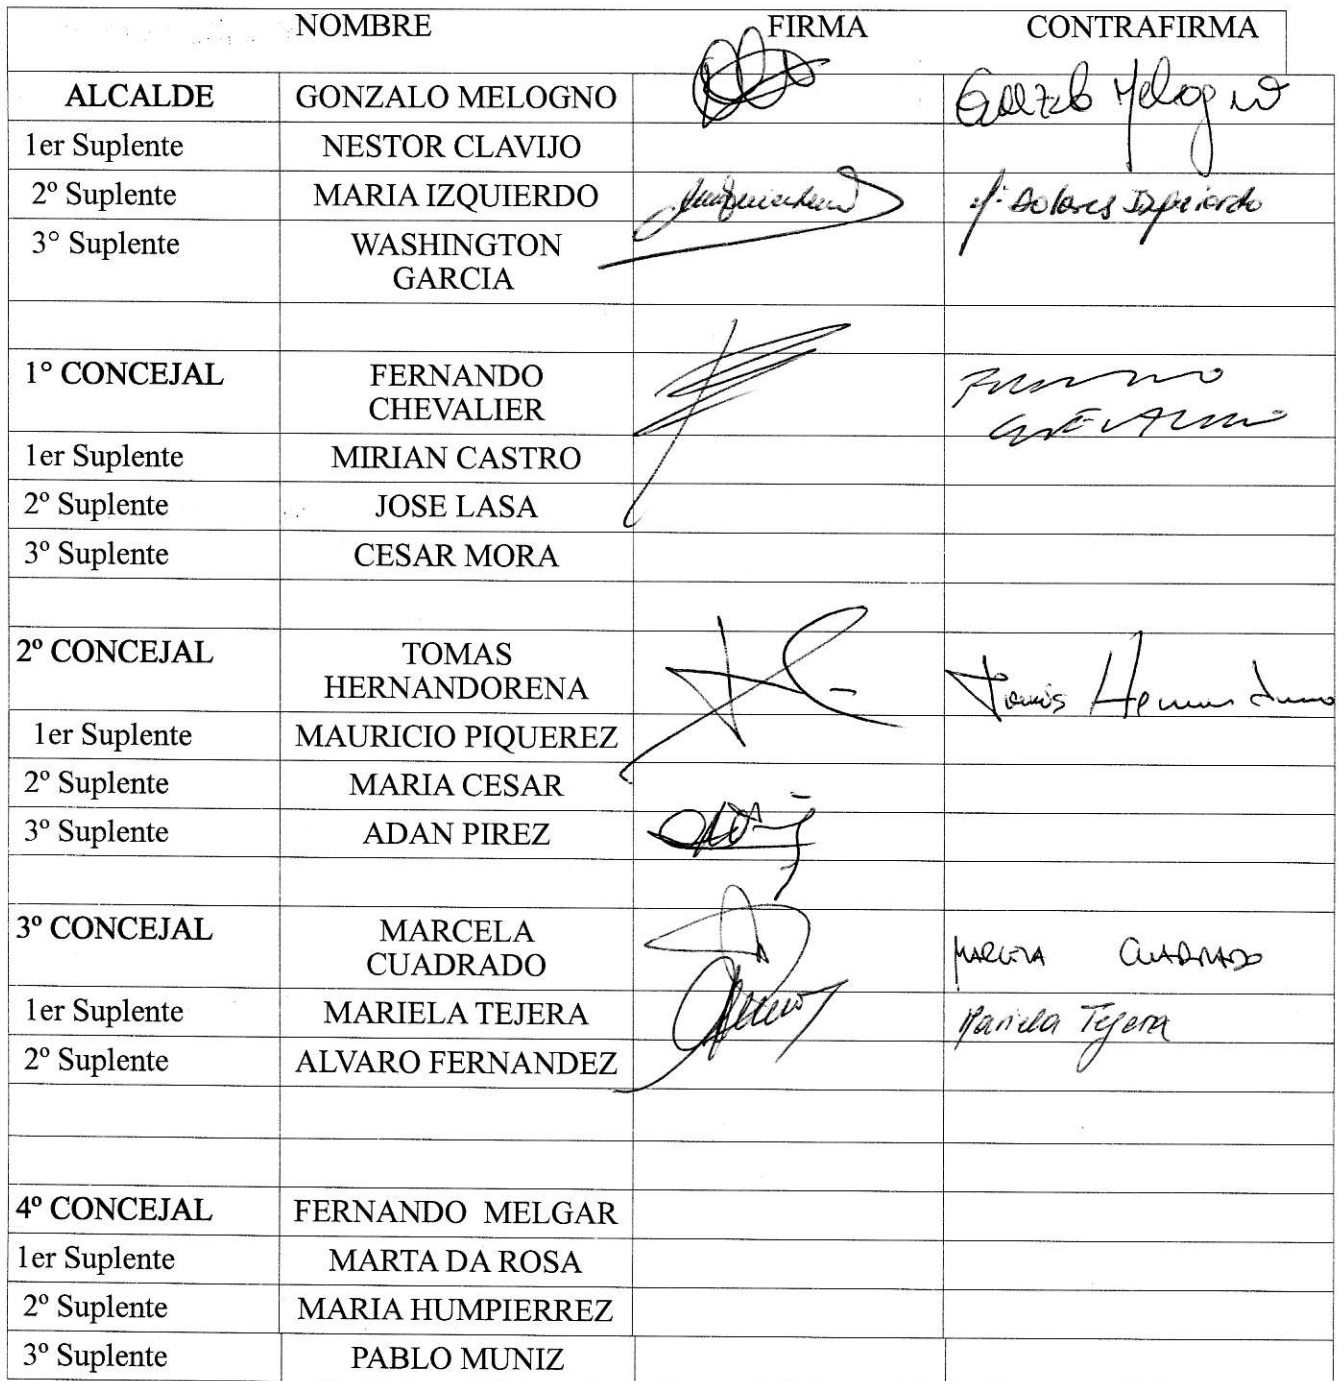 NOMBRE FIRMA CONTRAFIRMA
ALCALDE GONZALO MELOGNO Gonzalo Melogno
1er Suplente NESTOR CLAVIJO
2º Suplente MARIA IZQUIERDO Mª Dolores Izquierdo
3° Suplente WASHINGTON
GARCIA
1° CONCEJAL FERNANDO
CHEVALIER
1er Suplente MIRIAN CASTRO
2º Suplente JOSE LASA
3º Suplente CESAR MORA
2º CONCEJAL TOMAS
HERNANDORENA Tomás
1er Suplente MAURICIO PIQUEREZ
2º Suplente MARIA CESAR
3º Suplente ADAN PIREZ
3º CONCEJAL MARCELA
CUADRADO MARCELA CUADRADO
1er Suplente MARIELA TEJERA Mariela Tejera
2º Suplente ALVARO FERNANDEZ
4º CONCEJAL FERNANDO MELGAR
1er Suplente MARTA DA ROSA
2º Suplente MARIA HUMPIERREZ
3º Suplente PABLO MUNIZ